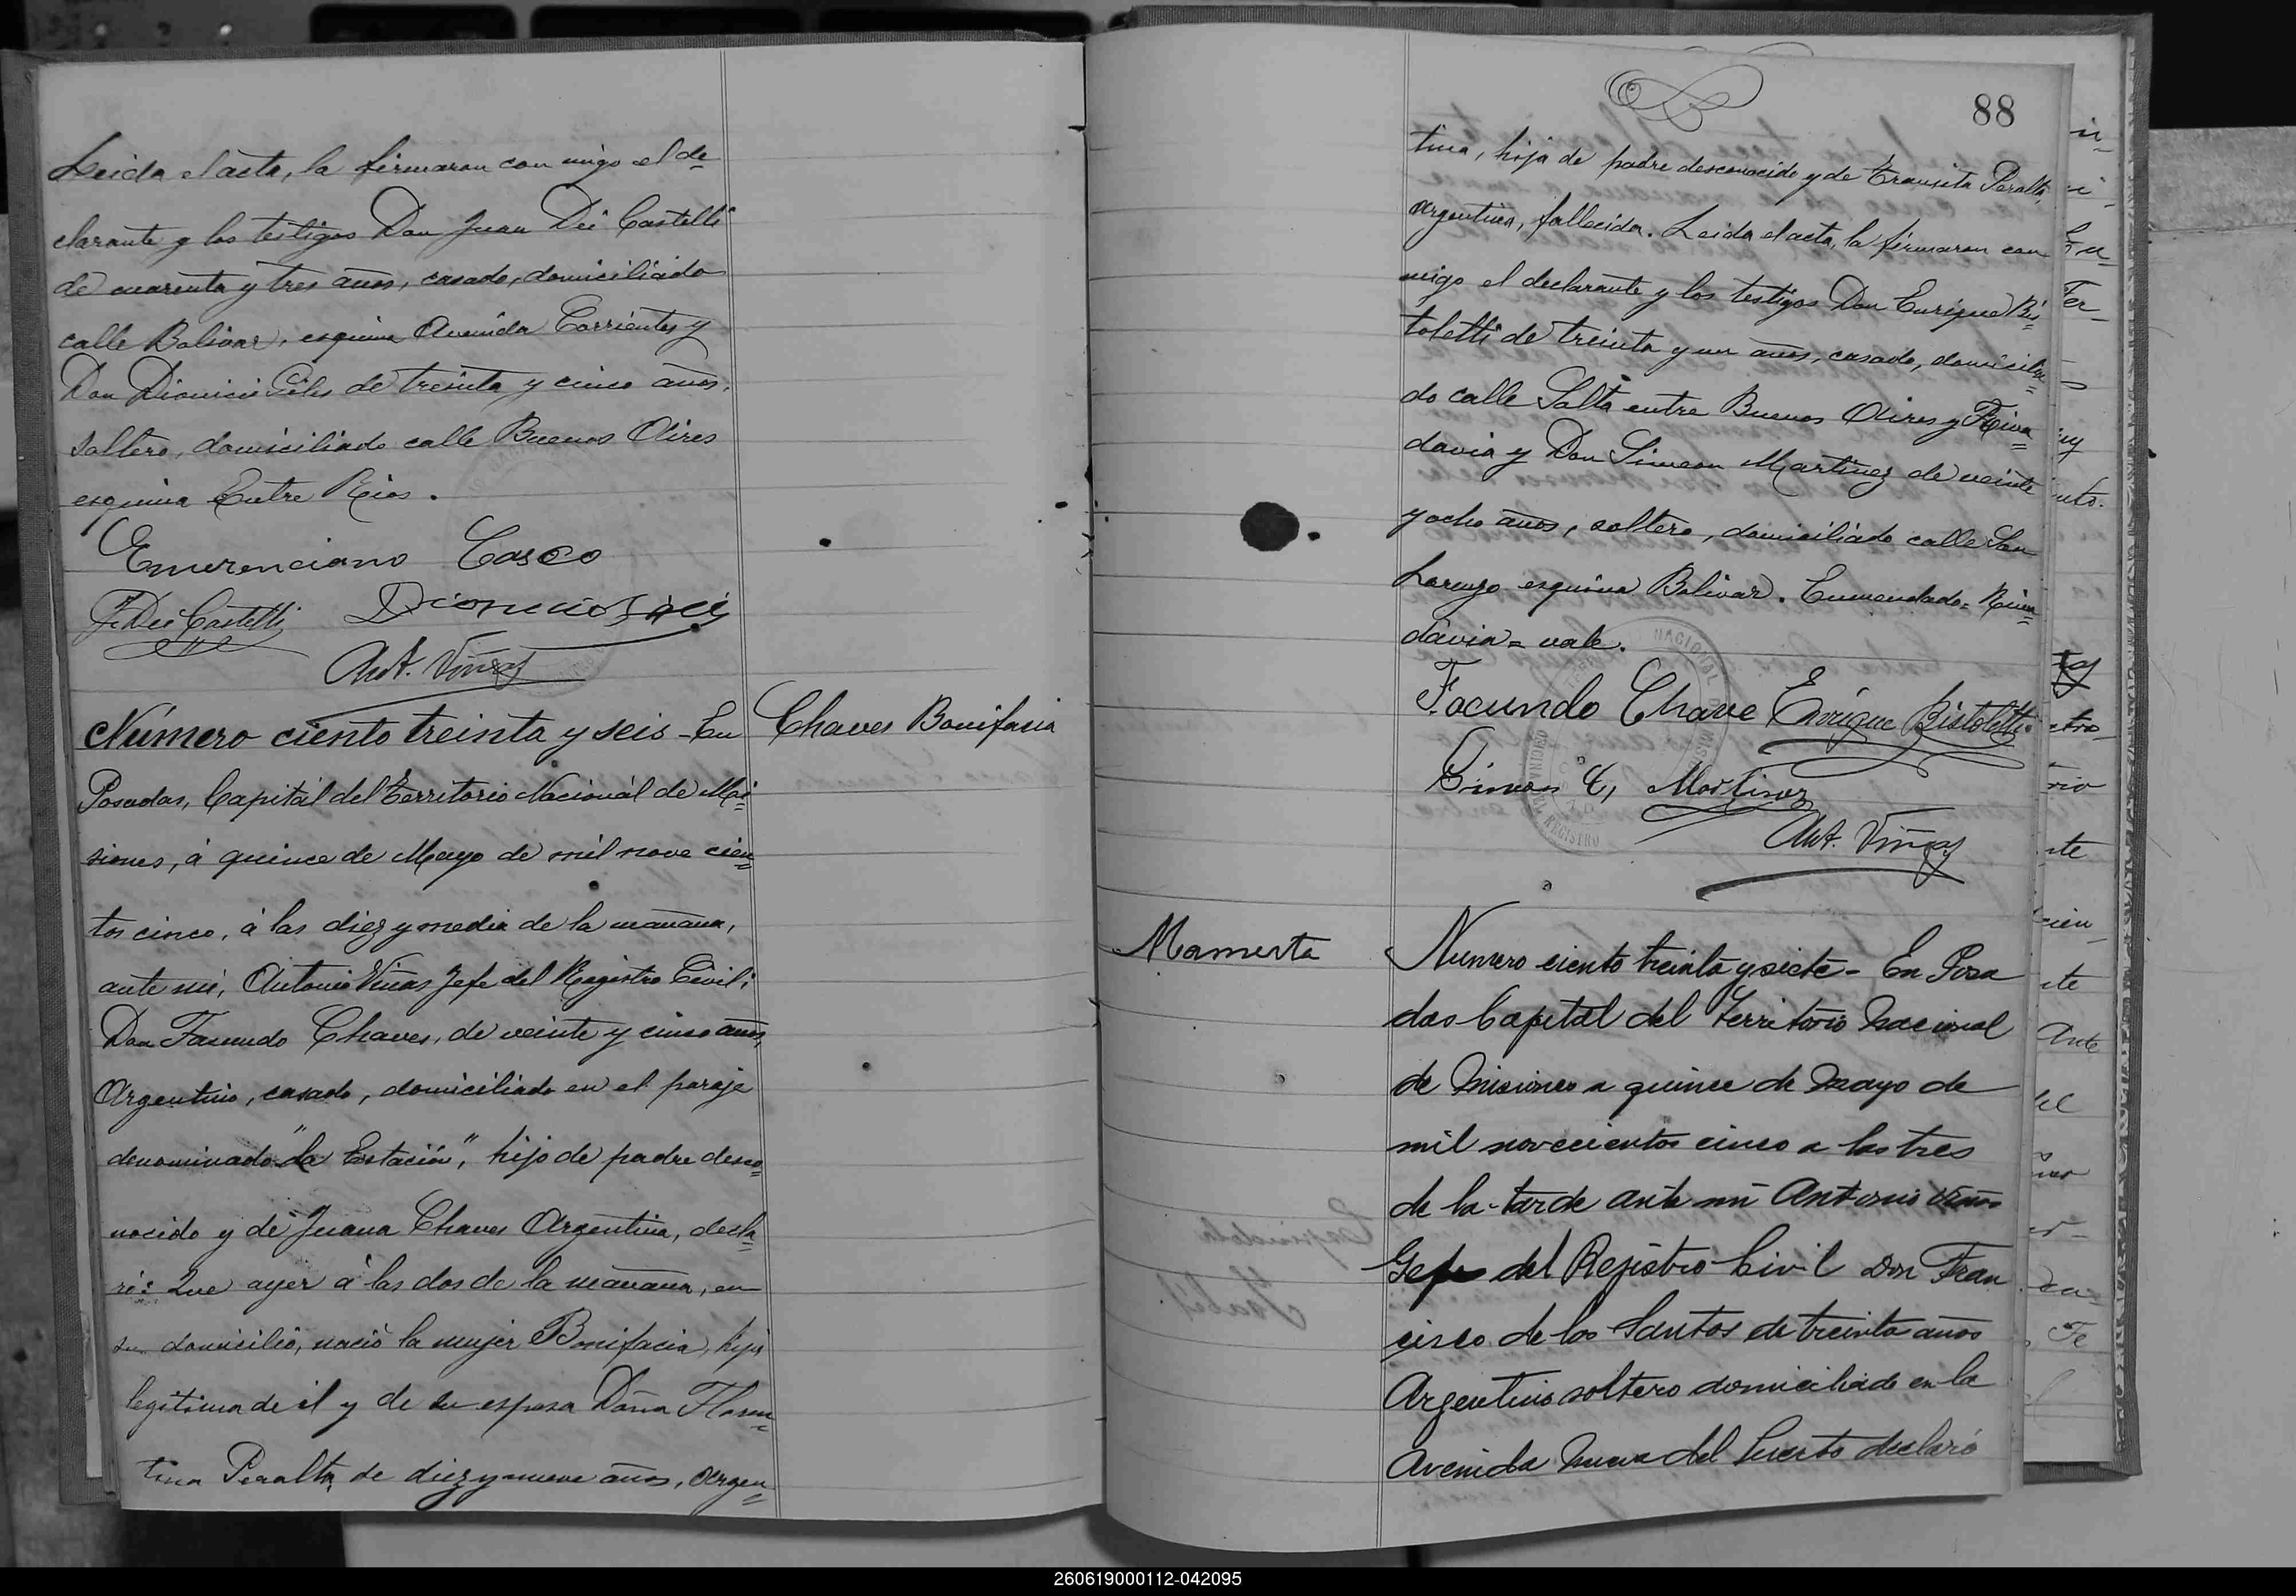 Leida el acta, la firmaron con migo el de=
clarante y los testigos Don Juan Dei Castelli
de cuarenta y tres años, casado, domiciliado
calle Bolivar, esquina Avenida Corrientes y
Don Dionicio de treinta y cinco años,
soltero, domiciliado calle Buenos Aires
esquina Entre Rios.
Emerenciano Casco
J. Dei Castelli Dionicio
Ant. Viñas
Número ciento treinta y seis - En
Chaves Bonifacia
Posadas, Capital del Territorio Nacional de Mi=
siones, á quince de Mayo de mil nove cien=
tos cinco, á las diez y media de la mañana,
ante mi, Antonio Viñas Jefe del Registro Civil;
Don Facundo Chaves, de veinte y cinco años,
Argentino, casado, domiciliado en el paraje
denominado "La Estación", hijo de padre desco=
nocido y de Juana Chaves Argentina, decla=
ró: Que ayer á las dos de la mañana, en
su domicilio, nació la mujer Bonifacia, hija
legitima de él y de su esposa Doña Floren=
tina Peralta, de diez y nueve años, Argen=
88
tina, hija de padre desconocido y de Transita Peralta,
Argentina, fallecida. Leida el acta, la firmaron con
migo el declarante y los testigos Don Enrique Bis=
toletti de treinta y un años, casado, domicilia=
do calle Salta entre Buenos Aires y Riva=
davia y Don Simeon Martinez de veinte
y ocho años, soltero, domiciliado calle San
Lorenzo esquina Bolivar. Enmendado = Riva=
davia = vale.
Facundo Chave Enrique Bistoletti
Simeon Martinez
Ant. Viñas
Mamerta
Numero ciento treinta y siete - En Posa
das Capital del Territorio Nacional
de Misiones a quince de Mayo de
mil novecientos cinco a las tres
de la tarde ante mi Antonio Viñas
Gefe del Rejistro Civil Don Fran
cisco de los Santos de treinta años
Argentino soltero domiciliado en la
Avenida Nueva del Puerto declaró
260619000112-042095